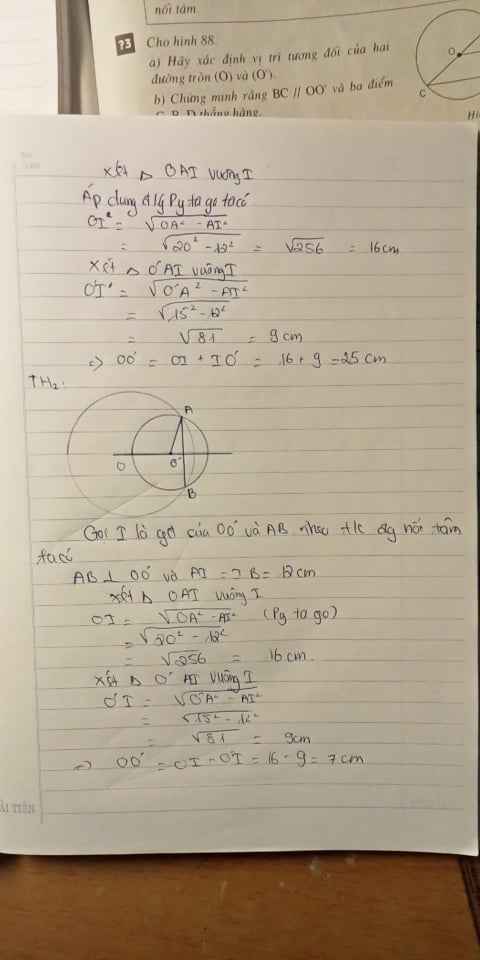 nối tâm.
?3 Cho hình 88.
a) Hãy xác định vị trí tương đối của hai
đường tròn (O) và (O').
b) Chứng minh rằng BC // OO' và ba điểm
C, B, D thẳng hàng.
O
C
Xét Δ OAI vuông I
Áp dụng đ lý Py ta go ta có
OI² = √OA² - AI²
= √20² - 12² = √256 = 16cm
Xét Δ O'AI vuông I
O'I' = √O'A² - AI²
= √15² - 12²
= √81 = 9cm
=> OO' = OI + IO' = 16 + 9 = 25 cm
TH₂:
A
O O'
B
Gọi I là gđ của OO' và AB theo t/c đg nối tâm
ta có
AB ⊥ OO' và AI = IB = 12cm
Xét Δ OAI vuông I
OI = √OA² - AI² (Py ta go)
= √20² - 12²
= √256 = 16cm.
Xét Δ O'AI vuông I
O'I = √O'A² - AI²
= √15² - 12²
= √81 = 9cm
=> OO' = OI - O'I = 16 - 9 = 7cm
ẢI TIẾN